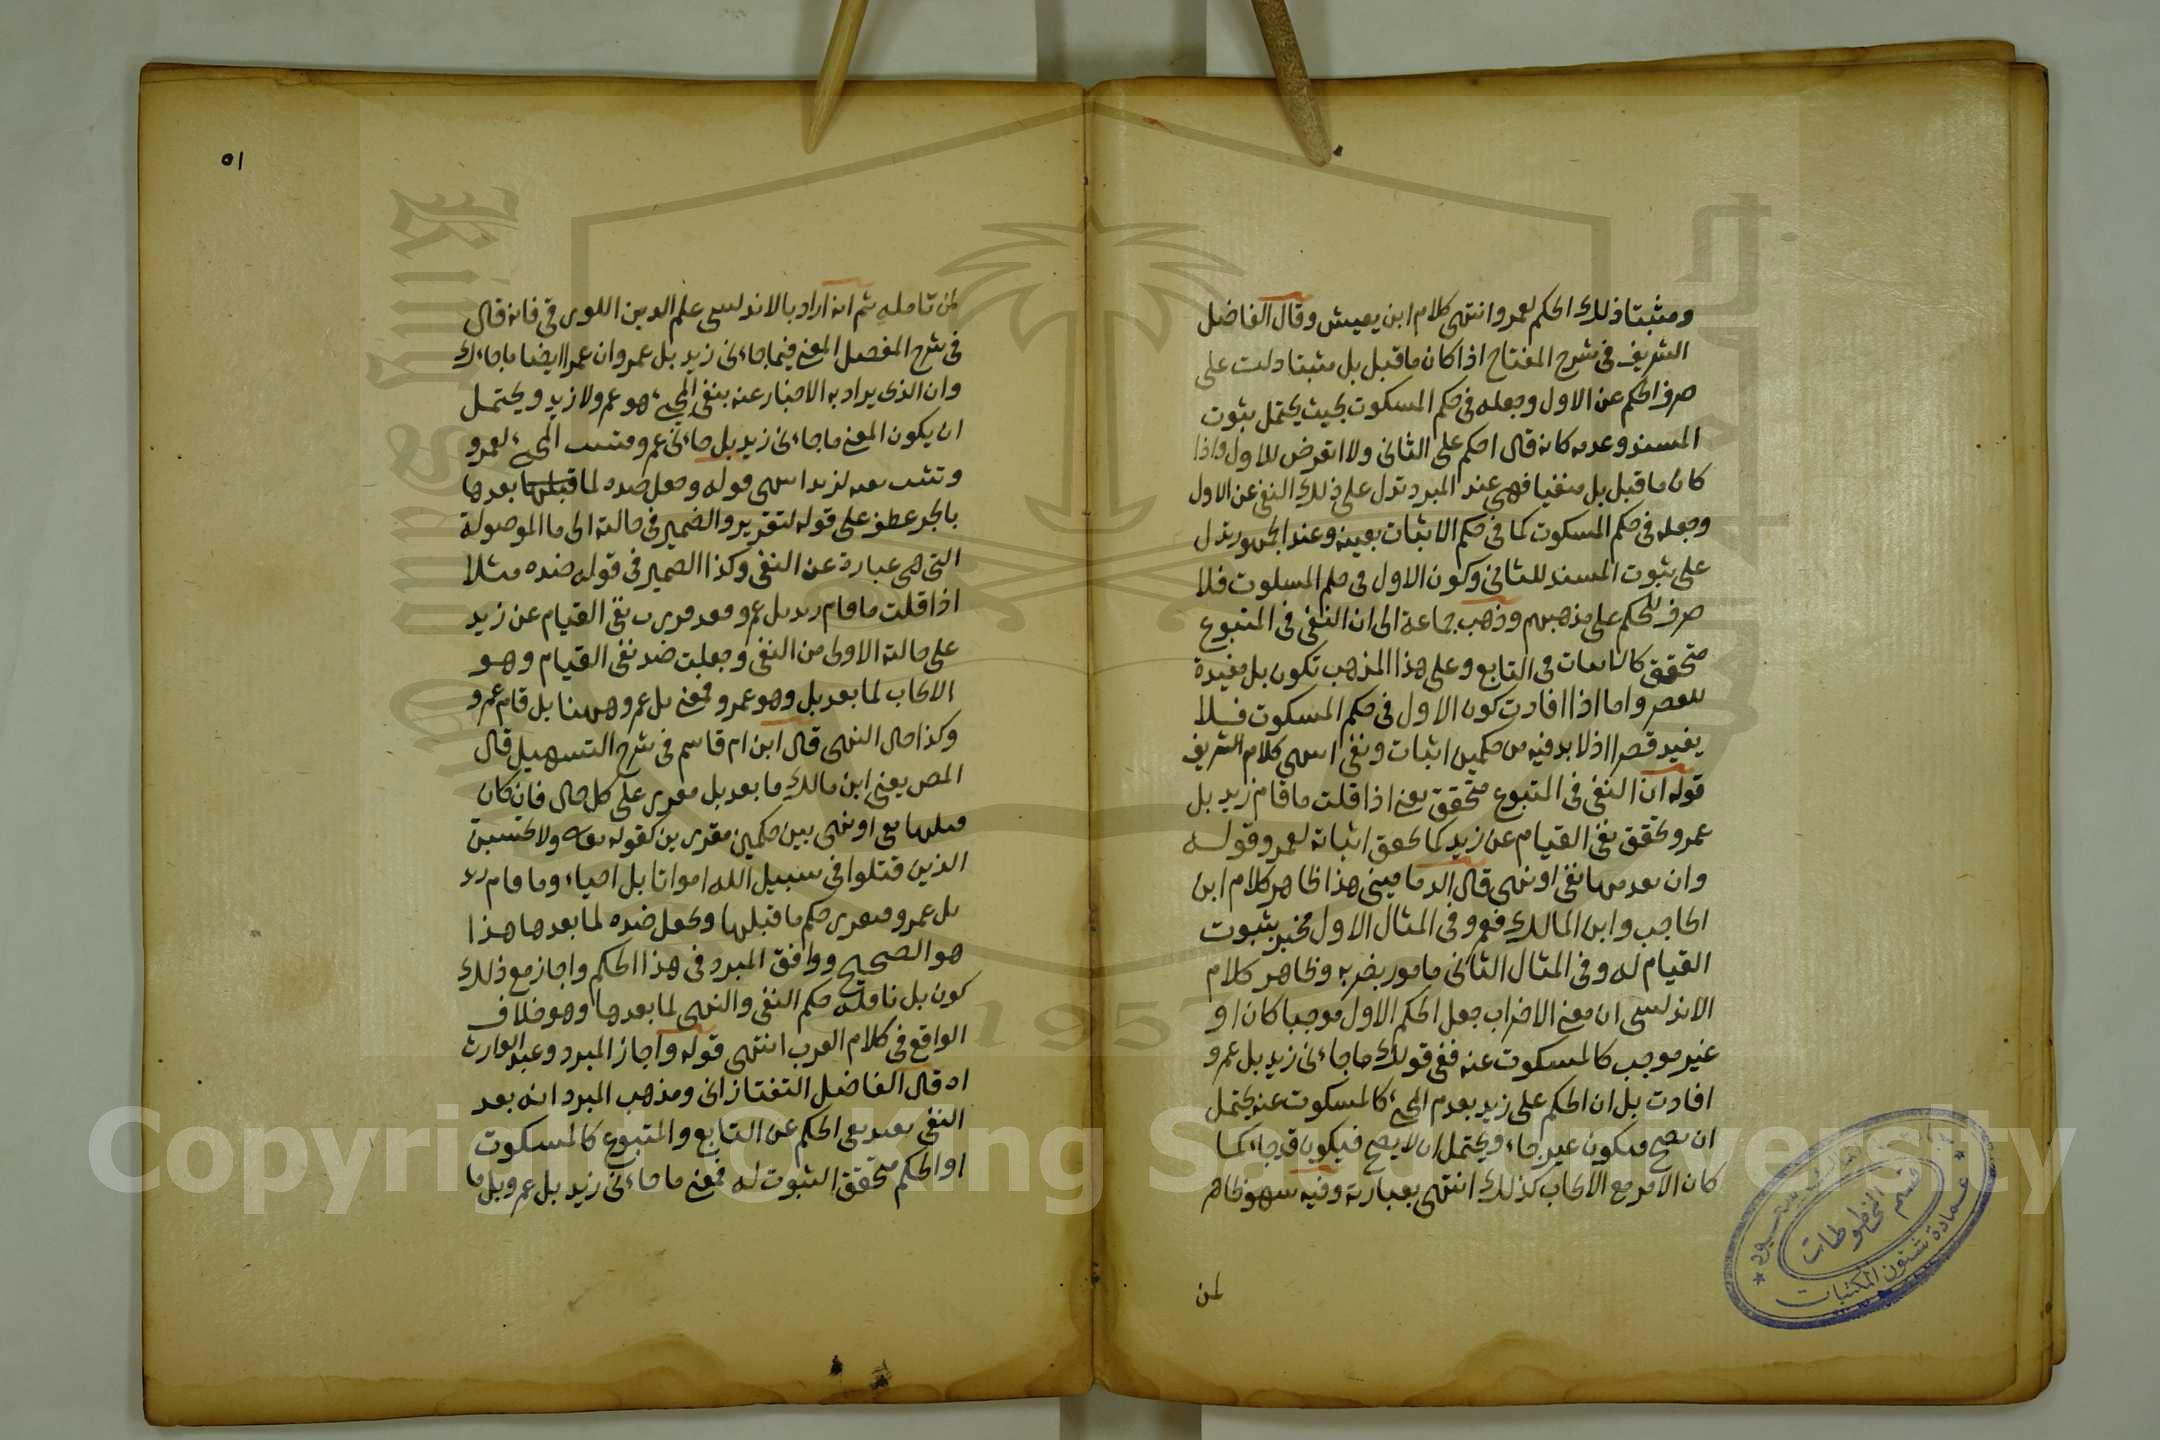 ومثبتا ذلك الحكم لعمرو انتهى كلام ابن يعيش وقال الفاضل
الشريف في شرح المفتاح اذا كان ما قبل بل مثبتا دلت على
صرف الحكم عن الاول وجعله في حكم المسكوت بحيث يحتمل ثبوت
المسند وعدمه كانه قال احكم على الثاني ولا اتعرض للاول واذا
كان ما قبل بل منفيا فهي عند المبرد تدل على ذلك النفي عن الاول
وجعله في حكم المسكوت كما في حكم الاثبات بعينه وعند الجمهور تدل
على ثبوت المسند للثاني وكون الاول في حكم المسكوت فلا
صرف للحكم على مذهبهم وذهب جماعة الى ان النفي في المتبوع
متحقق كالاثبات في التابع وعلى هذا المذهب تكون بل مفيدة
للقصر واما اذا افادت كون الاول في حكم المسكوت فلا
يفيد قصرا اذ لا بد فيه من حكمين اثبات ونفي انتهى كلام الشريف
قوله ان النفي في المتبوع متحقق يعني اذا قلت ما قام زيد بل
عمرو تحقق نفي القيام عن زيد كما تحقق اثباته لعمرو قوله
وان تقدمها نفي او نهي قال الدماميني هذا ظاهر كلام ابن
الحاجب وابن المالك فعمرو في المثال الاول مخبر بثبوت
القيام له وفي المثال الثاني مامور بضربه وظاهر كلام
الاندلسي ان معنى الاضراب جعل الحكم الاول موجبا كان او
غير موجب كالمسكوت عنه ففي قولك ما جاءني زيد بل عمرو
افادت بل ان الحكم على زيد بعدم المجيء كالمسكوت عنه يحتمل
ان يصح فيكون غير جاء ويحتمل ان لا يصح فيكون قد جاء كما
كان الامر مع الايجاب كذلك انتهى بعبارته وفيه سهو ظاهر
لمن
٥١
لمن تامله ثم انه اراد بالاندلسي علم الدين اللورقي فانه قال
في شرح المفصل المعنى فيما جاءني زيد بل عمرو ان عمرا ايضا ما جاءك
وان الذي يراد به الاخبار عنه بنفي المجيء هو عمرو لا زيد ويحتمل
ان يكون المعنى ما جاءني زيد بل جاءني عمرو فتثبت المجيء لعمرو
وتثبت نفيه لزيد انتهى قوله وجعل ضده لما قبلها بعدها
بالجر عطف على قوله لتقرير والضمير في حالته الى ما الموصولة
التي هي عبارة عن النفي وكذا الضمير في قوله ضده مثلا
اذا قلت ما قام زيد بل عمرو فقد قررت نفي القيام عن زيد
على حالته الاولى من النفي وجعلت ضد نفي القيام وهو
الايجاب لما بعد بل وهو عمرو فمعنى بل عمرو ههنا بل قام عمرو
وكذا حال النهي قال ابن ام قاسم في شرح التسهيل قال
المص يعني ابن مالك ما بعد بل مقرر على كل حال فان كان
قبلها نفي او نهي بين حكمين مقررين كقوله تعالى ولا تحسبن
الذين قتلوا في سبيل الله امواتا بل احياء وما قام زيد
بل عمرو فتقرر حكم ما قبلها وتجعل ضده لما بعدها هذا
هو الصحيح ووافق المبرد في هذا الحكم واجاز مع ذلك
كون بل ناقلة حكم النفي والنهي لما بعدها وهو خلاف
الواقع في كلام العرب انتهى قوله واجاز المبرد وعبد الوارث
اه قال الفاضل التفتازاني ومذهب المبرد انه بعد
النفي يفيد نفي الحكم عن التابع والمتبوع كالمسكوت
او الحكم متحقق الثبوت له فمعنى ما جاءني زيد بل عمرو بل ما
قسم المخطوطات
عمادة شئون المكتبات
Copyright © King Saud University
King Saud University
1957